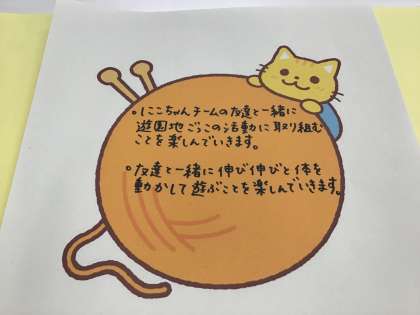 。にこちゃんチームの友達と一緒に
遊園地ごっこの活動に取り組む
ことを楽しんでいきます。
。友達と一緒に伸び伸びと体を
動かして遊ぶことを楽しんでいきます。